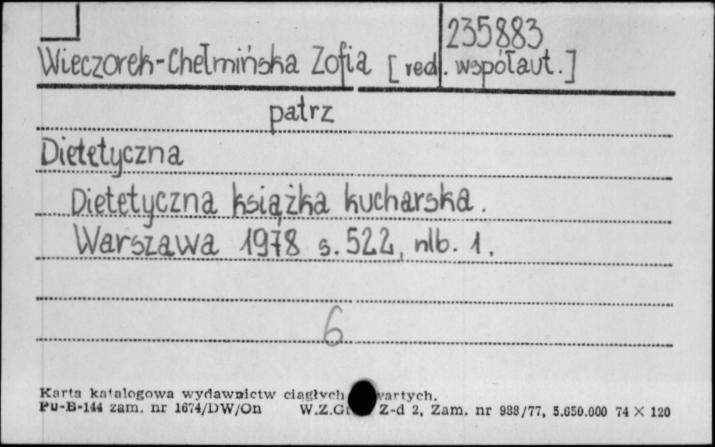 235883
Wieczorek-Chełmińska Zofia [red. współaut.]
patrz
Dietetyczna
Dietetyczna książka kucharska.
Warszawa 1978 s. 522, nlb. 1.
6
Karta katalogowa wydawnictw ciągłych wartych.
Pu-B-144 zam. nr 1674/DW/On W.Z.G Z-d 2, Zam. nr 988/77, 5.650.000 74 × 120